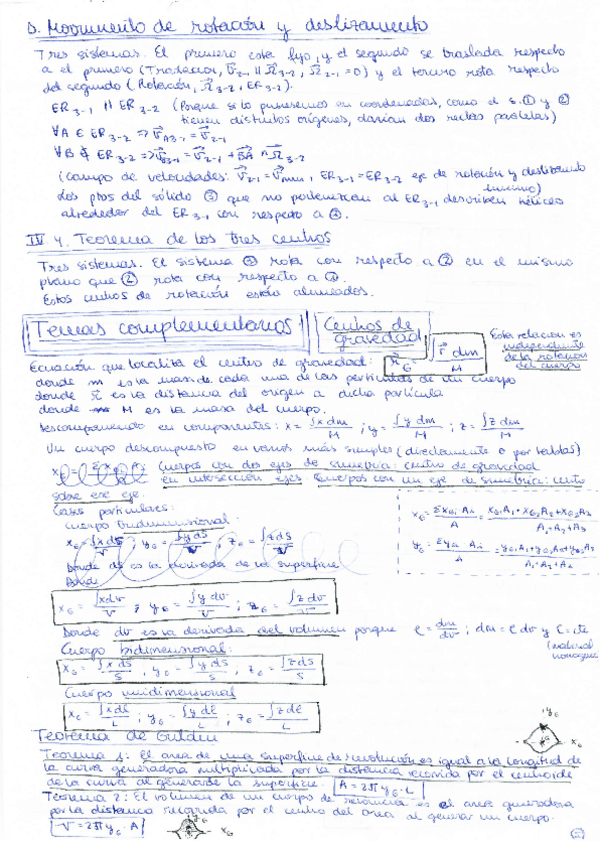 D. Movimiento de rotación y deslizamiento
Tres sistemas. El primero esta fijo, y el segundo se traslada respecto
a el primero (Traslacion, V⃗2-1 || Ω⃗3-2, Ω⃗2-1 = 0) y el tercero rota respecto
del segundo (Rotación, Ω⃗3-2, ER3-2).
ER3-1 || ER3-2 (Porque si lo pusiesemos en coordenadas, como el s. ① y ②
tienen distintos orígenes, darían dos rectas paralelas)
∀A ∈ ER3-2 => V⃗A3-1 = V⃗2-1
∀B ∉ ER3-2 => V⃗B3-1 = V⃗2-1 + BA⃗ ∧ Ω⃗3-2
(campo de velocidades: V⃗2-1 = V⃗min, ER3-1 = ER3-2 eje de rotación y deslizamiento
mínimo)
Los ptos del sólido ③ que no pertenezcan al ER3-1 describen hélices
alrededor del ER3-1 con respecto a ①.
IV 4. Teorema de los tres centros
Tres sistemas. El sistema ③ rota con respecto a ② en el mismo
plano que ② rota con respecto a ①.
Estos centros de rotación están alineados.
Temas complementarios
Centros de
gravedad
Ecuación que localiza el centro de gravedad: r⃗G = ∫ r⃗ dm / M
Esta relacion es
independiente
de la rotacion
del cuerpo
donde m es la masa de cada una de las particulas de un cuerpo
donde r⃗ es la distancia del origen a dicha partícula
donde M es la masa del cuerpo.
Descomponiendo en componentes: x = ∫x dm / M ; y = ∫y dm / M ; z = ∫z dm / M
Un cuerpo descompuesto en varios más simples (directamente o por tablas)
Cuerpos con dos ejes de simetria: centro de gravedad
en intersección ejes. Cuerpos con un eje de simetria: centro
sobre ese eje.
xG = Σ xGi Ai / A = xG1 A1 + xG2 A2 + xG3 A3 / A1 + A2 + A3
yG = Σ yGi Ai / A = yG1 A1 + yG2 A2 + yG3 A3 / A1 + A2 + A3
Casos particulares:
Cuerpo tridimensional:
xG = ∫x dS / V ; yG = ∫y dS / V ; zG = ∫z dS / V
Donde ds es la derivada de la superficie
Donde
xG = ∫x dv / V ; yG = ∫y dv / V ; zG = ∫z dv / V
Donde dv es la derivada del volumen porque ρ = dm/dv ; dm = ρ dv y ρ = cte
(material
homogeneo)
Cuerpo bidimensional:
xG = ∫x dS / S , yG = ∫y dS / S , zG = ∫z dS / S
Cuerpo unidimensional
xG = ∫x dL / L ; yG = ∫y dL / L ; zG = ∫z dL / L
Teorema de Gulden
yG
xG
Teorema 1: El area de una superficie de revolución es igual a la longitud de
la curva generadora multiplicada por la distancia recorrida por el centroide
de la curva al generarse la superficie. A = 2π yG · L
Teorema 2: El volumen de un cuerpo de revolución es el area generadora
por la distancia recorrida por el centro del area al generar un cuerpo.
V = 2π yG · A
yG
xG